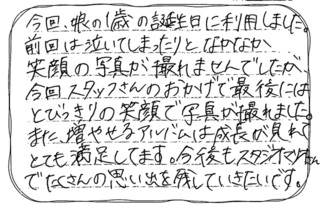 今回、娘の1歳の誕生日に利用しました。
前回は泣いてしまったりと、なかなか
笑顔の写真が撮れませんでしたが、
今回スタッフさんのおかげで最後には
とびっきりの笑顔で写真が撮れました。
また、増やせるアルバムは成長が見れて
とても満足してます。今後もスタジオマリオさん
でたくさんの思い出を残していきたいです。